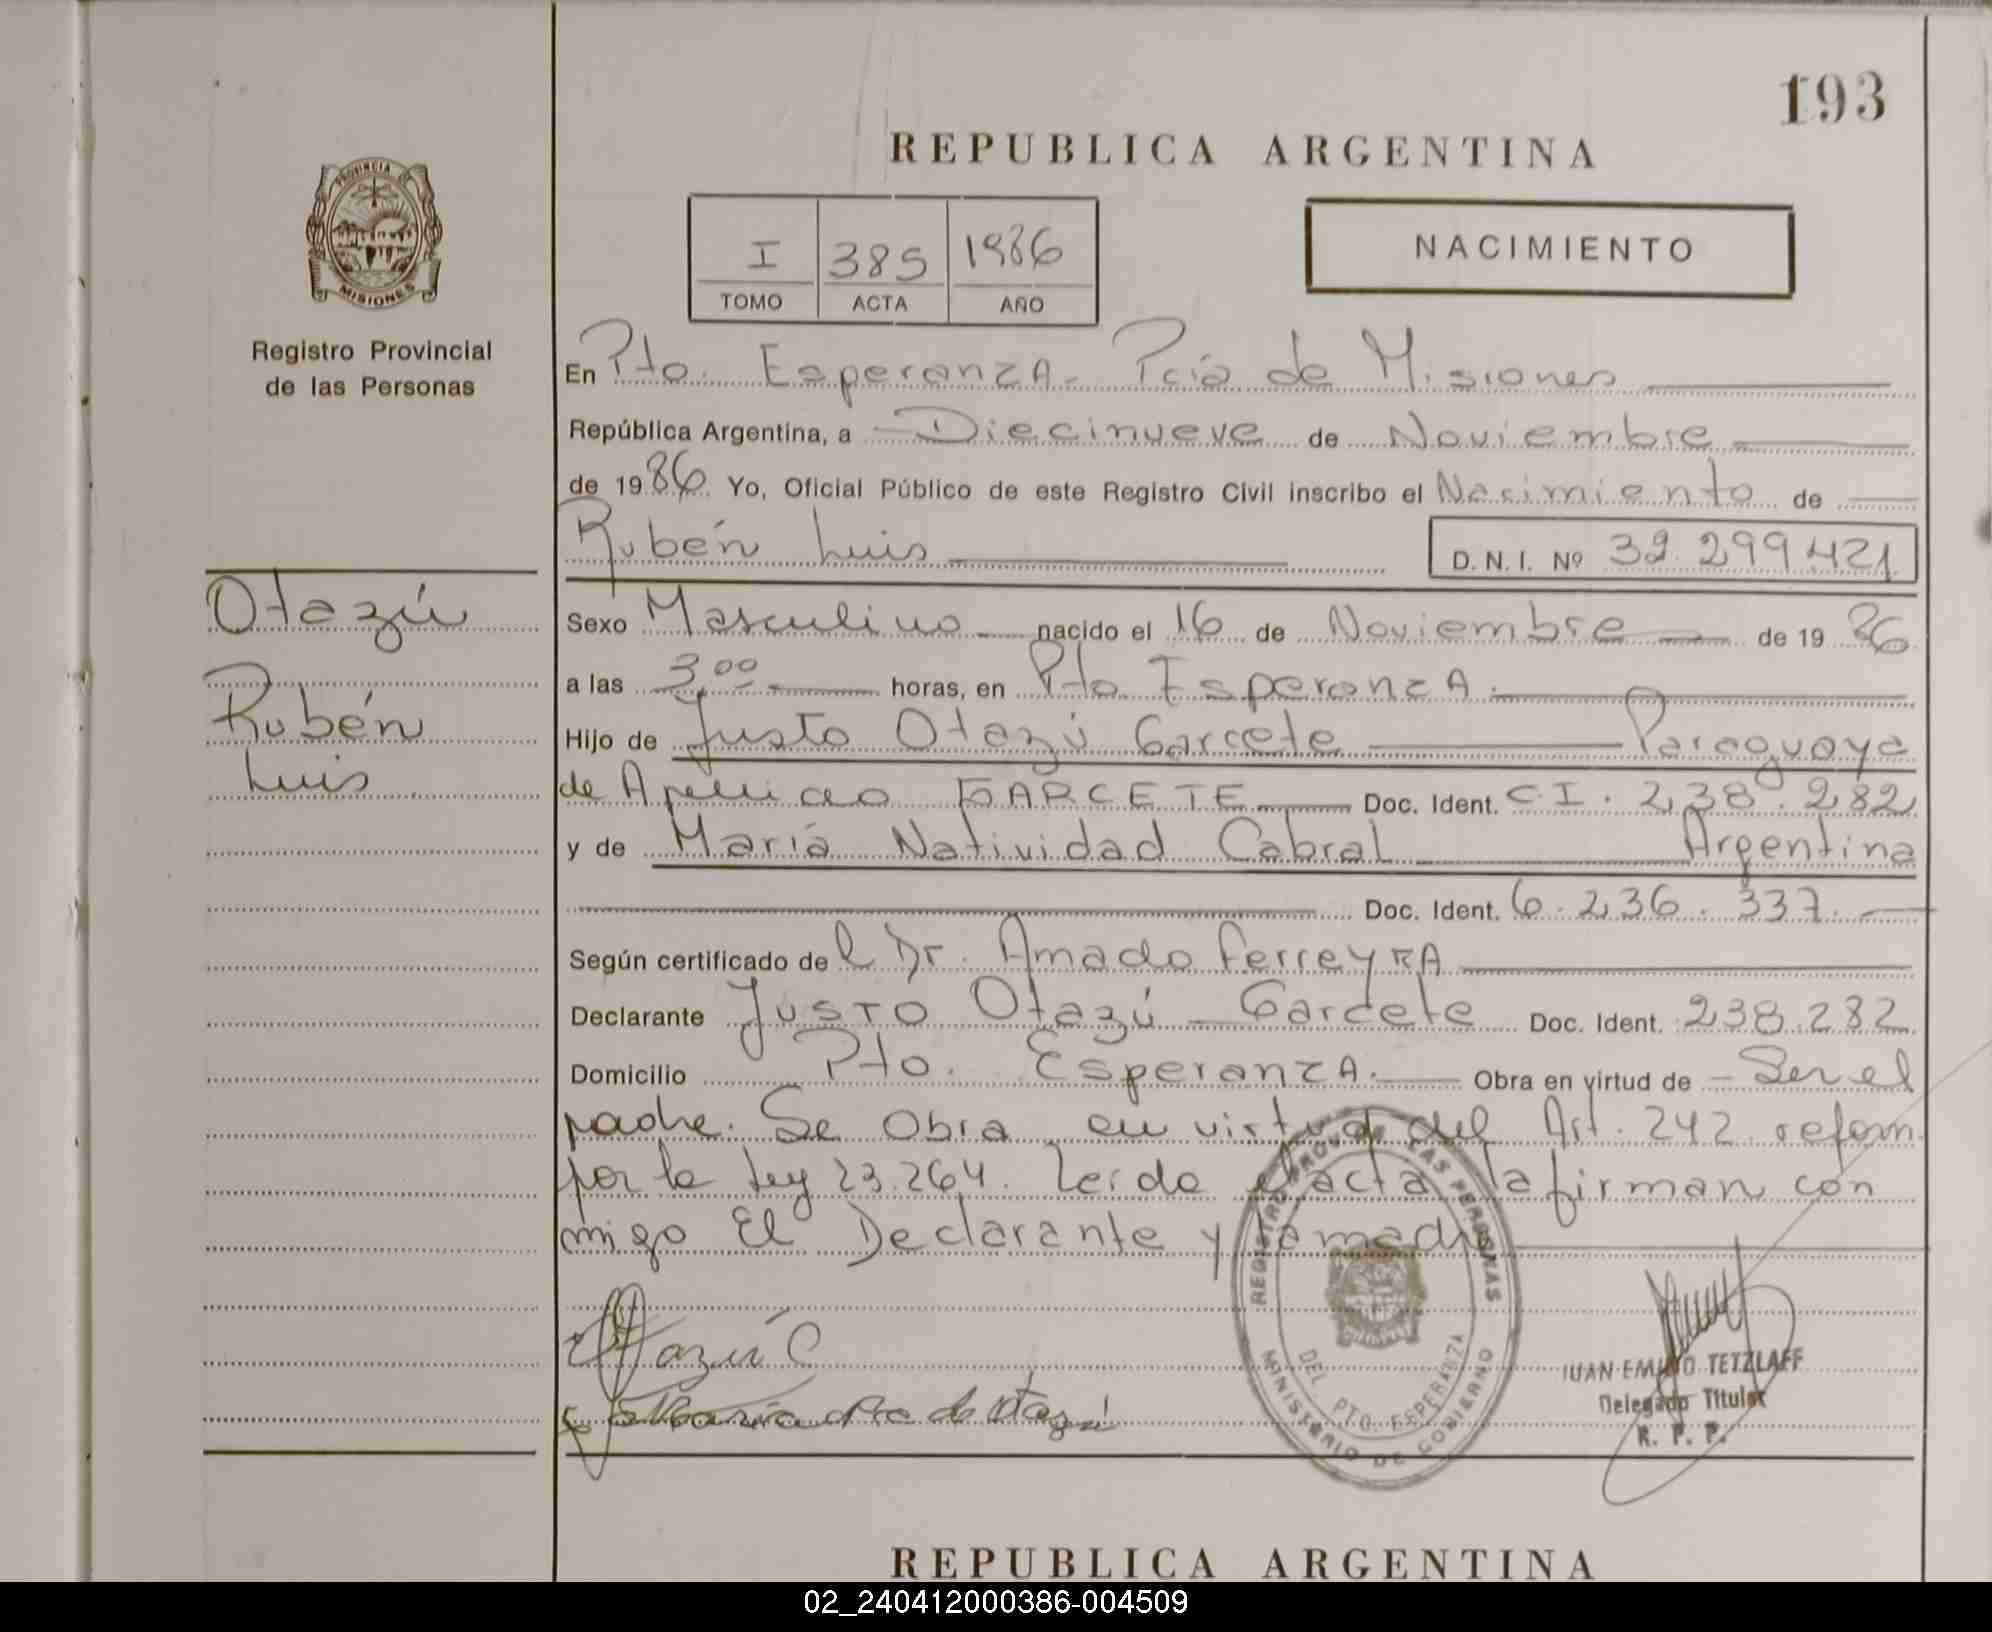 193
REPUBLICA ARGENTINA
PROVINCIA DE
MISIONES
Registro Provincial
de las Personas
I 385 1986
TOMO ACTA AÑO
NACIMIENTO
En Pto. Esperanza - Pcia de Misiones
República Argentina, a Diecinueve de Noviembre
de 1986 Yo, Oficial Público de este Registro Civil inscribo el Nacimiento de
Rubén Luis D. N. I. Nº 32.299.421
Otazú
Rubén
Luis
Sexo Masculino nacido el 16 de Noviembre de 1986
a las 3,00 horas, en Pto Esperanza.
Hijo de Justo Otazú Garcete Paraguaya
de Apellido GARCETE Doc. Ident. C.I. 238.282
y de María Natividad Cabral Argentina
Doc. Ident. 6.236.337.
Según certificado del Dr. Amado Ferreyra
Declarante Justo Otazú Garcete Doc. Ident. 238.282
Domicilio Pto. Esperanza. Obra en virtud de Ser el
padre. Se Obra en virtud del Art. 242 reform
por la Ley 23.264. Leida el acta la firman con
migo El Declarante y la madre
Otazú G
María de Otazú
REGISTRO PROV. DE LAS PERSONAS
DEL PTO. ESPERANZA
MINISTERIO DE GOBIERNO
JUAN EMILIO TETZLAFF
Delegado Titular
R. P. P.
REPUBLICA ARGENTINA
02_240412000386-004509